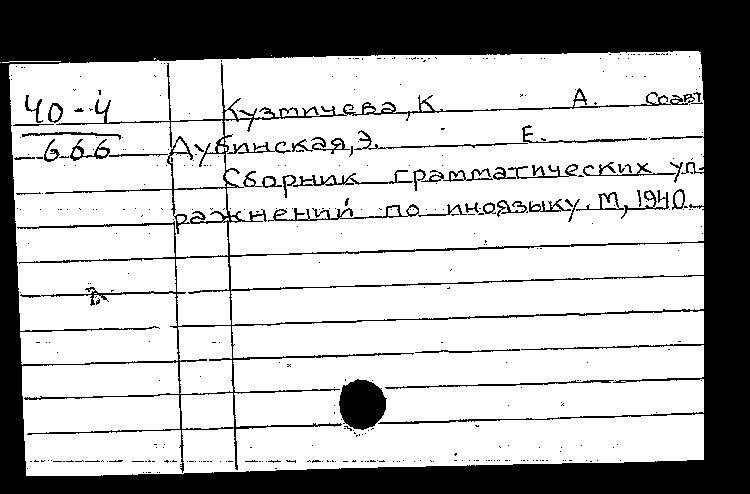 40-4
666
Кузмичева, К. А. Соавт
Дубинская, Э. Е.
Сборник грамматических уп-
ражнений по иноязыку. М, 1940.